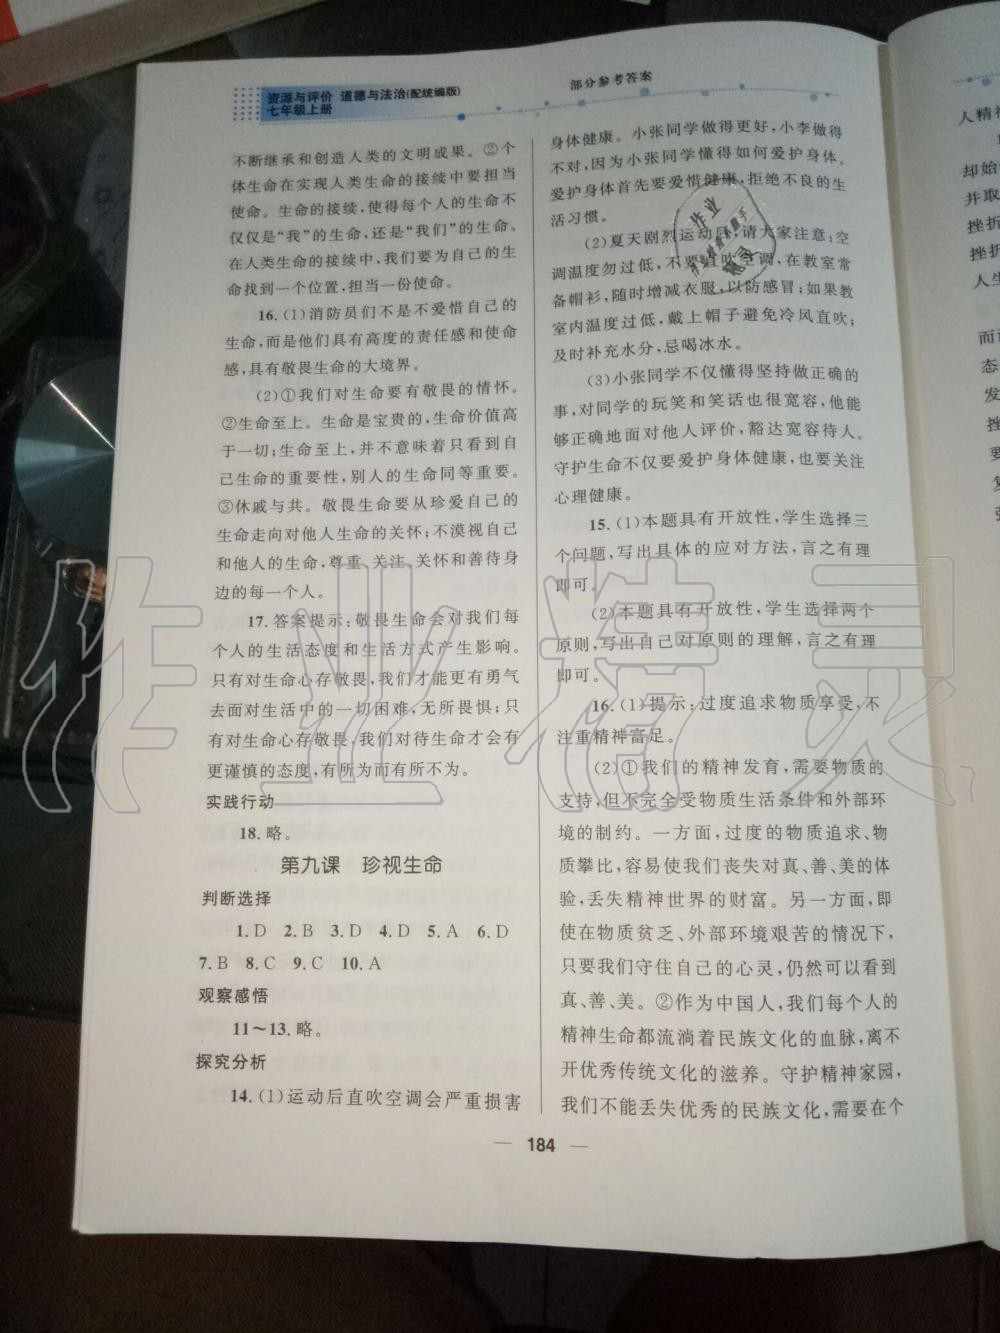 资源与评价 道德与法治(配统编版)
七年级上册
部分参考答案
不断继承和创造人类的文明成果。②个
体生命在实现人类生命的接续中要担当
使命。生命的接续,使得每个人的生命不
仅仅是“我”的生命,还是“我们”的生命。
在人类生命的接续中,我们要为自己的生
命找到一个位置,担当一份使命。
16.(1)消防员们不是不爱惜自己的
生命,而是他们具有高度的责任感和使命
感,具有敬畏生命的大境界。
(2)①我们对生命要有敬畏的情怀。
②生命至上。生命是宝贵的,生命价值高
于一切;生命至上,并不意味着只看到自
己生命的重要性,别人的生命同等重要。
③休戚与共。敬畏生命要从珍爱自己的
生命走向对他人生命的关怀;不漠视自己
和他人的生命,尊重、关注、关怀和善待身
边的每一个人。
17.答案提示:敬畏生命会对我们每
个人的生活态度和生活方式产生影响。
只有对生命心存敬畏,我们才能更有勇气
去面对生活中的一切困难,无所畏惧;只
有对生命心存敬畏,我们对待生命才会有
更谨慎的态度,有所为而有所不为。
实践行动
18.略。
第九课 珍视生命
判断选择
1.D 2.B 3.D 4.D 5.A 6.D
7.B 8.C 9.C 10.A
观察感悟
11～13.略。
探究分析
14.(1)运动后直吹空调会严重损害
身体健康。小张同学做得更好,小李做得
不对,因为小张同学懂得如何爱护身体。
爱护身体首先要爱惜健康,拒绝不良的生
活习惯。
(2)夏天剧烈运动后,请大家注意:空
调温度勿过低,不要直吹空调,在教室常
备帽衫,随时增减衣服,以防感冒;如果教
室内温度过低,戴上帽子避免冷风直吹;
及时补充水分,忌喝冰水。
(3)小张同学不仅懂得坚持做正确的
事,对同学的玩笑和笑话也很宽容,他能
够正确地面对他人评价,豁达宽容待人。
守护生命不仅要爱护身体健康,也要关注
心理健康。
15.(1)本题具有开放性,学生选择三
个问题,写出具体的应对方法,言之有理
即可。
(2)本题具有开放性,学生选择两个
原则,写出自己对原则的理解,言之有理
即可。
16.(1)提示:过度追求物质享受,不
注重精神富足。
(2)①我们的精神发育,需要物质的
支持,但不完全受物质生活条件和外部环
境的制约。一方面,过度的物质追求、物
质攀比,容易使我们丧失对真、善、美的体
验,丢失精神世界的财富。另一方面,即
使在物质贫乏、外部环境艰苦的情况下,
只要我们守住自己的心灵,仍然可以看到
真、善、美。②作为中国人,我们每个人的
精神生命都流淌着民族文化的血脉,离不
开优秀传统文化的滋养。守护精神家园,
我们不能丢失优秀的民族文化,需要在个
— 184 —
人精神
却始
并取
挫折
挫折
人生
而
态
发
挫
要
复
作业精灵
作业
精灵